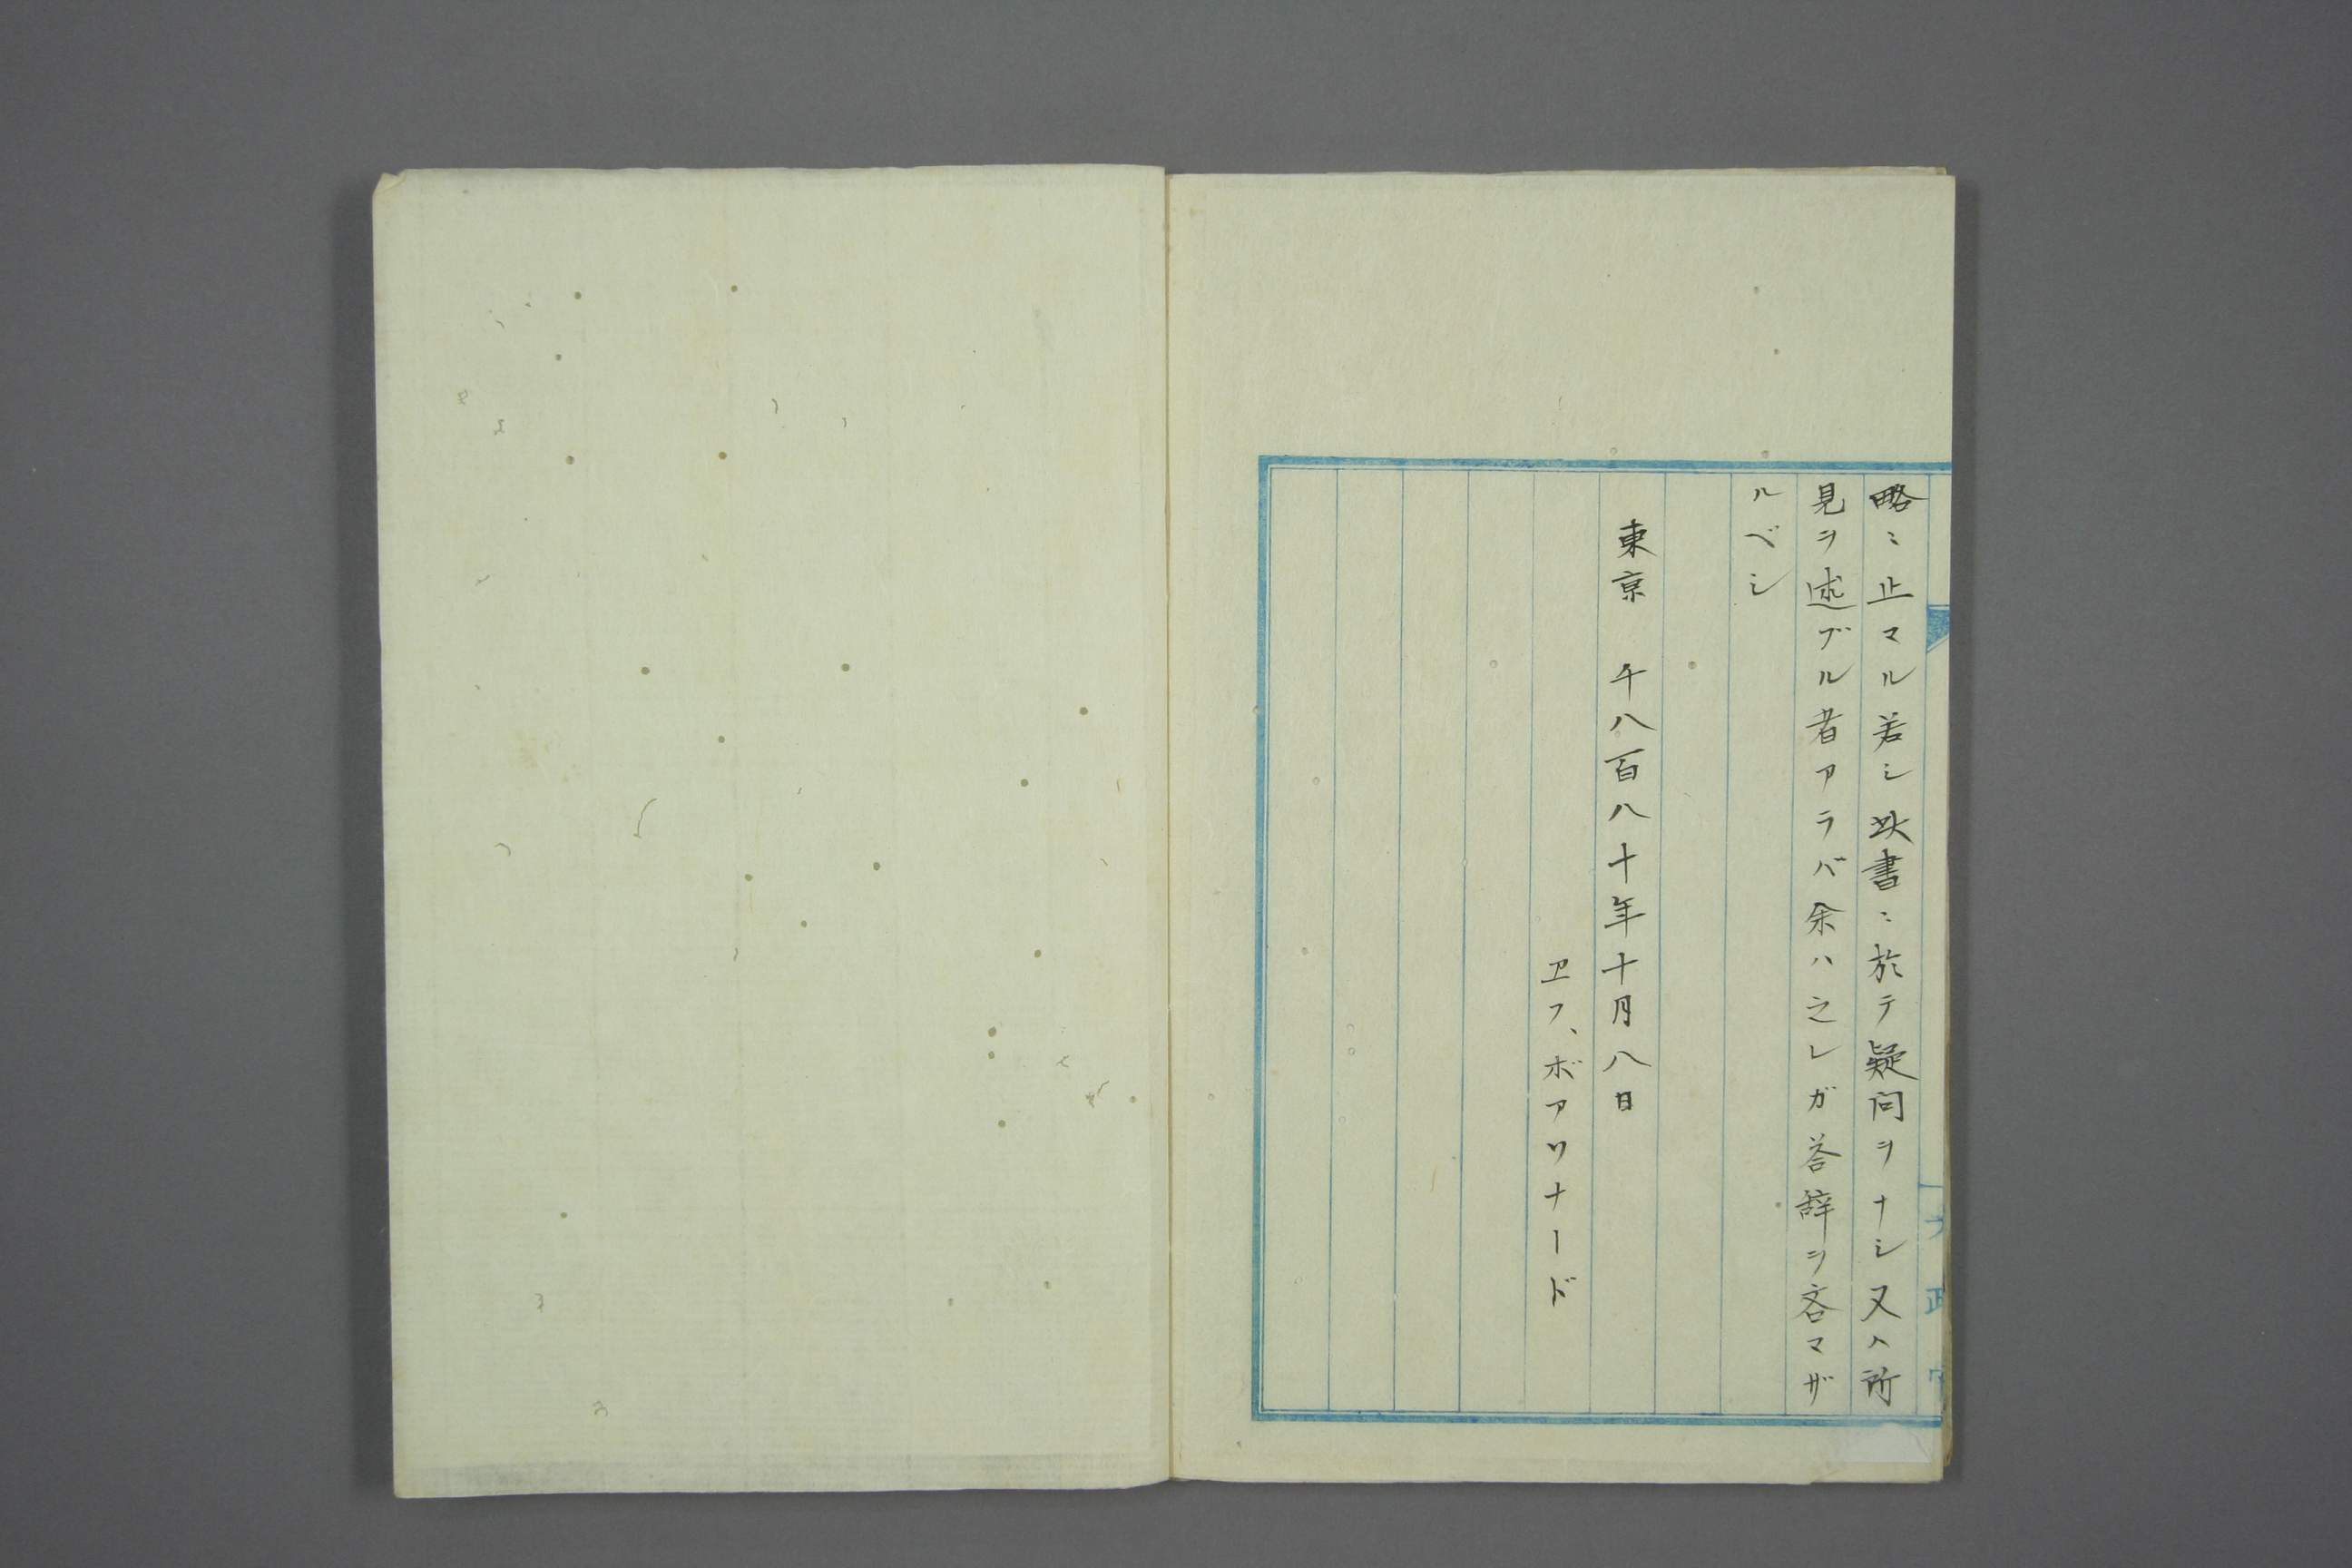 略ニ止マル若シ此書ニ於テ疑問ヲナシ又ハ所
見ヲ述ブル者アラバ余ハ之レガ答辞ヲ吝マザ
ルベシ
東京　千八百八十年十月八日
ヱフ、ボアソナード